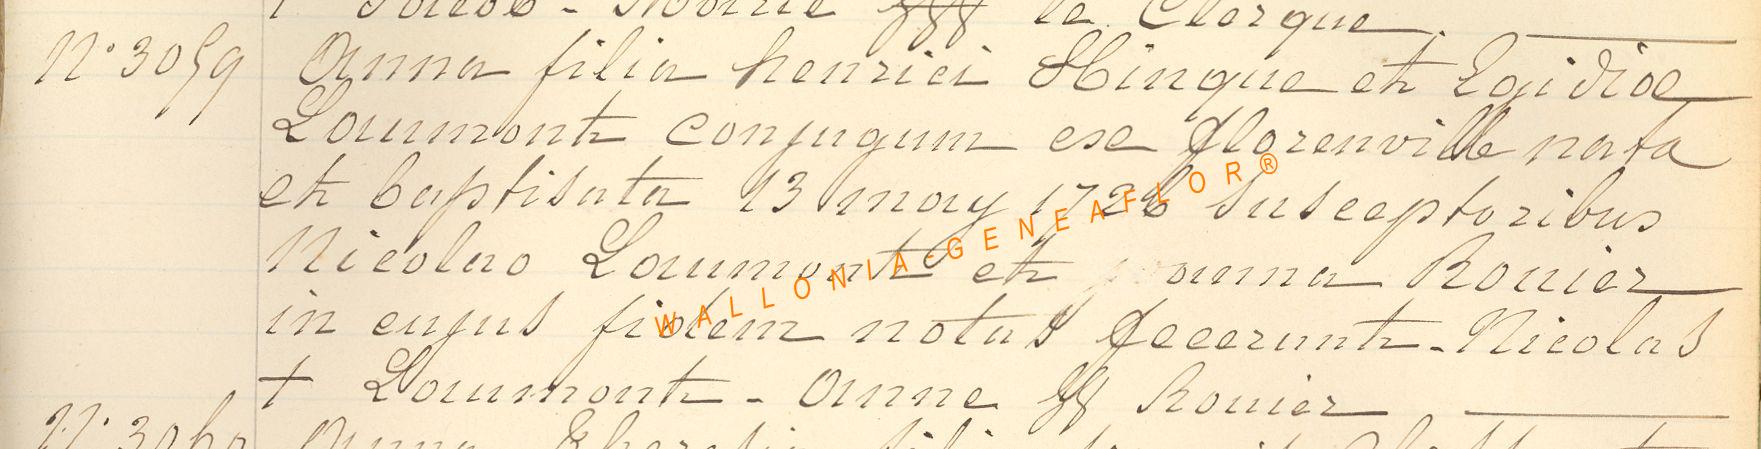 le Clerque.
N° 3059 Anna filia henrici Hinque et Egidiae
Loumont conjugum ex florenville nata
et baptisata 13 may 1726 Susceptoribus
Nicolao Loumont et anna Rouier
in cujus fidem notas fecerunt - Nicolas
+ Loumont - Anne Rouier
N° 3060 Anna
WALLONIA-GENEAFLOR®